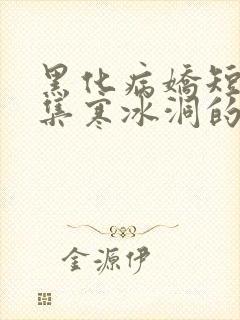 黑化病娇短
集寒冰洞的
金源伊